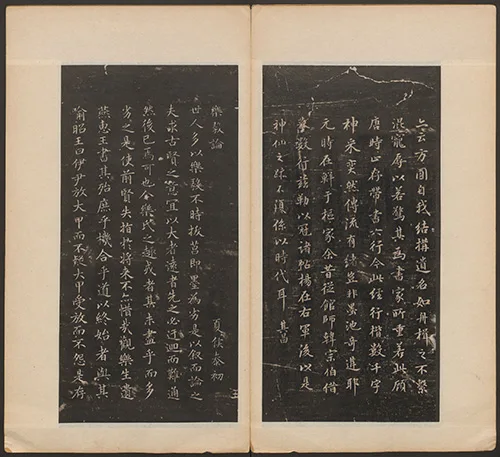 云方圓自我結搆遺名如舟楫之不繫
混寵辱以若驚其為書家所重若此顧
唐時止存帶畫六行今此經行楷數千字
神采奕然傳流有緒豈非墨池奇遘耶
元時在鮮于樞家余昔從館師韓宗伯借
摹數行茲勒以冠諸帖在右軍後以是
神仙之跡不復係以時代耳 其昌
樂毅論
夏侯泰初
世人多以樂毅不時拔莒即墨為劣是以叙而論之
夫求古賢之意宜以大者遠者先之必迂迴而難通
然後已焉可也今樂氏之趣或者其未盡乎而多
劣之是使前賢失指於將來不亦惜哉觀樂生遺
燕惠王書其殆庶乎機合乎道以終始者與其
喻昭王曰伊尹放大甲而不疑大甲受放而不怨是存